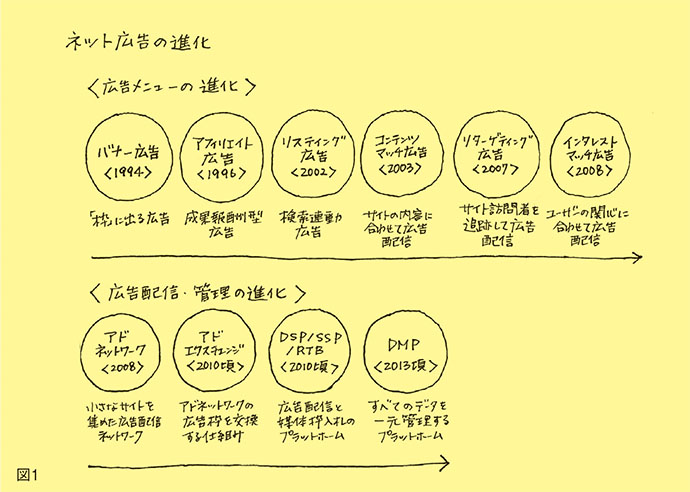 ネット広告の進化
〈広告メニューの進化〉
バナー広告
〈1994〉
「枠」に出る広告
アフィリエイト
広告
〈1996〉
成果報酬型
広告
リスティング
広告
〈2002〉
検索連動
広告
コンテンツ
マッチ広告
〈2003〉
サイトの内容に
合わせて広告
配信
リターゲティング
広告
〈2007〉
サイト訪問者を
追跡して広告
配信
インタレスト
マッチ広告
〈2008〉
ユーザーの関心に
合わせて広告
配信
〈広告配信・管理の進化〉
アド
ネットワーク
〈2008〉
小さなサイトを
集めた広告配信
ネットワーク
アド
エクスチェンジ
〈2010頃〉
アドネットワークの
広告枠を交換
する仕組み
DSP/SSP
/RTB
〈2010頃〉
広告配信と
媒体枠入札の
プラットホーム
DMP
〈2013頃〉
すべてのデータを
一元管理する
プラットホーム
図1